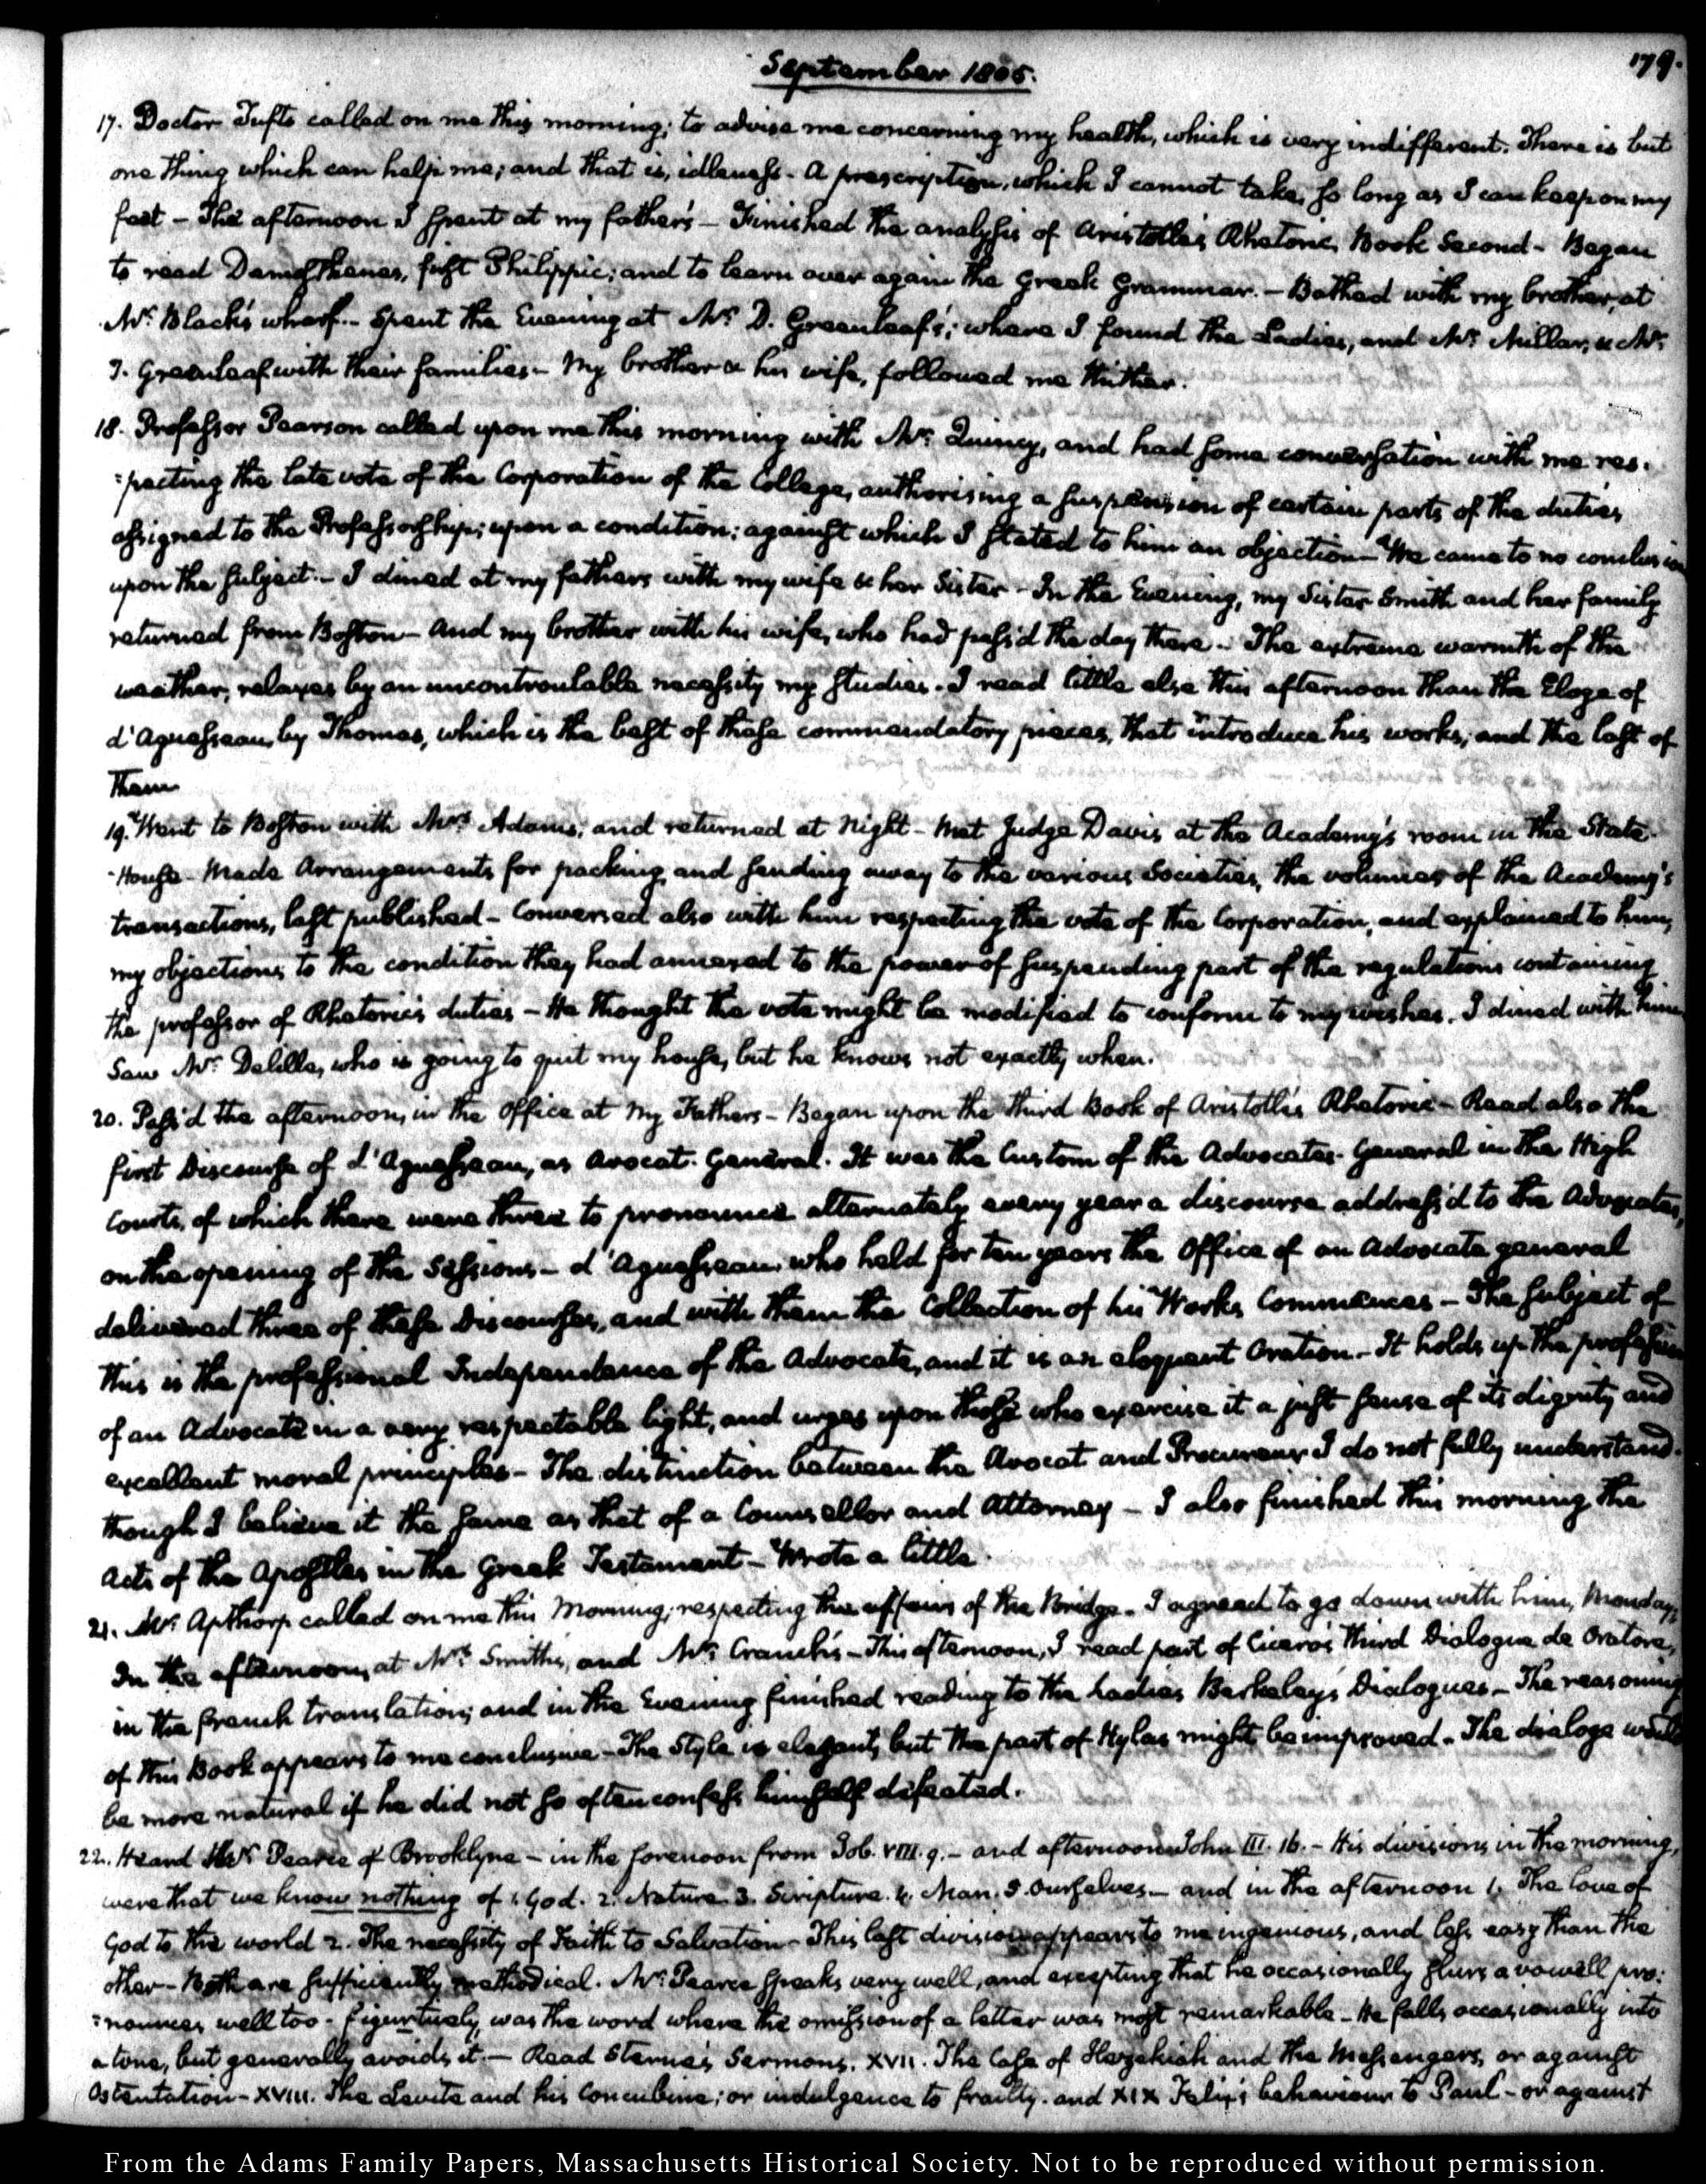 September 1805.
179.
17. Doctor Tufts called on me this morning; to advise me concerning my health, which is very indifferent. There is but
one thing which can help me; and that is, idleness - A prescription, which I cannot take, so long as I can keep on my
feet - The afternoon I spent at my father's - Finished the analysis of Aristotle's Rhetoric, Book Second - Began
to read Demosthenes, first Philippic; and to learn over again the Greek Grammar. - Bathed with my brother, at
Mr. Black's wharf. - Spent the Evening at Mr. D. Greenleaf's; where I found the Ladies, and Mr. Millar, & Mr.
J. Greenleaf with their families - My brother & his wife, followed me thither.
18. Professor Pearson called upon me this morning with Mr. Quincy, and had some conversation with me res-
=pecting the late vote of the Corporation of the College, authorising a suspension of certain parts of the duties,
assigned to the Professorship; upon a condition: against which I stated to him an objection - We came to no conclusion
upon the subject. - I dined at my fathers with my wife & her Sister - In the Evening, my Sister Smith and her family
returned from Boston - And my brother with his wife, who had pass'd the day there. - The extreme warmth of the
weather, relaxes by an uncontroulable necessity my studies. I read little else this afternoon than the Eloge of
d'Aguesseau, by Thomas, which is the best of these commendatory pieces, that introduce his works; and the last of
them
19. Went to Boston with Mrs. Adams; and returned at Night - Met Judge Davis at the Academy's room in the State-
-House - Made Arrangements for packing and sending away to the various Societies, the volumes of the Academy's
transactions, last published - Conversed also with him respecting the vote of the Corporation, and explained to him,
my objections to the condition they had annexed to the power of suspending part of the regulations containing
the professor of Rhetoric's duties - He thought the vote might be modified to conform to my wishes. I dined with him
Saw Mr. Delille, who is going to quit my house, but he knows not exactly when.
20. Pass'd the afternoon, in the Office at my Fathers - Began upon the third Book of Aristotle's Rhetoric - Read also the
first Discourse of d'Aguesseau, as Avocat-General. It was the Custom of the Advocates-General in the High
Courts, of which there were three to pronounce alternately every year a discourse address'd to the Advocates,
on the opening of the Sessions - d'Aguesseau who held for ten years the Office of an Advocate general
delivered three of these Discourses, and with them the Collection of his Works Commences - The subject of
this is the professional Independence of the Advocate, and it is an eloquent Oration - It holds up the profession
of an Advocate in a very respectable light, and urges upon those who exercise it a just sense of its dignity and
excellent moral principles - The distinction between the Avocat and Procureur I do not fully understand.
though I believe it the same as that of a Counsellor and Attorney - I also finished this morning the
Acts of the Apostles in the Greek Testament - Wrote a little.
21. Mr. Apthorp called on me this Morning; respecting the affairs of the Bridge. I agreed to go down with him, Monday,
In the afternoon, at Mrs. Smith's, and Mr. Cranch's - This afternoon, I read part of Cicero's third Dialogue de Oratore,
in the french translation; and in the Evening finished reading to the Ladies Berkeley's Dialogues - The reasoning
of this Book appears to me conclusive - The Style is elegant, but the part of Hylas might be improved - The dialoge would
be more natural if he did not so often confess himself defeated.
22. Heard Mr. Pearce of Brooklyne - in the forenoon from Job. VIII. 9. - and afternoon John III. 16. - His divisions in the morning,
were that we know nothing of 1. God. 2. Nature 3. Scripture. 4. Man. 5. Ourselves - and in the afternoon 1. The love of
God to the world 2. The necessity of Faith to Salvation - This last division appears to me ingenious, and less easy than the
other - Both are sufficiently methodical. Mr. Pearce speaks very well, and excepting that he occasionally slurs a vowell pro-
=nounces well too - figurtively, was the word where the omission of a letter was most remarkable - He falls occasionally into
a tone, but generally avoids it. - Read Sterne's Sermons. XVII. The Case of Hezekiah and the Messengers, or against
Ostentation - XVIII. The Levite and his Concubine; or indulgence to frailty. and XIX Felix's behaviour to Paul - or against
From the Adams Family Papers, Massachusetts Historical Society. Not to be reproduced without permission.